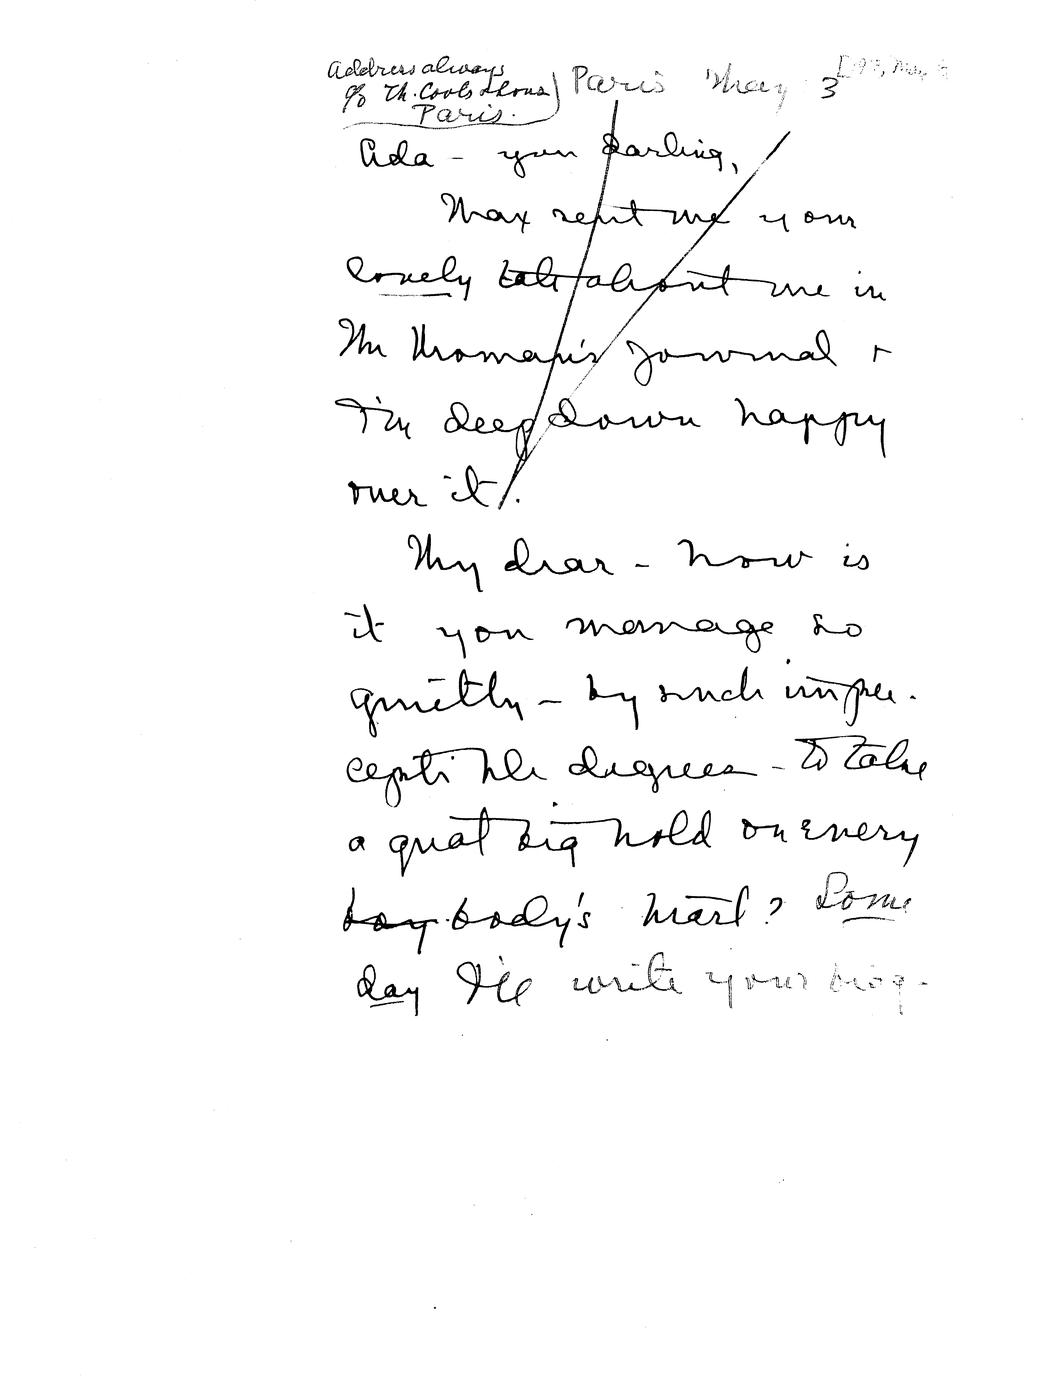 Address always
c/o Th. Cook & Sons
Paris.
Paris May 3
Ada - you darling,
Max sent me your
lovely talk about me in
The Woman's Journal +
I'm deep down happy
over it.
My dear - how is
it you manage so
quietly - by such imper-
ceptible degrees - to take
a great big hold on every
boy body's heart? Some
day I'll write your biog-